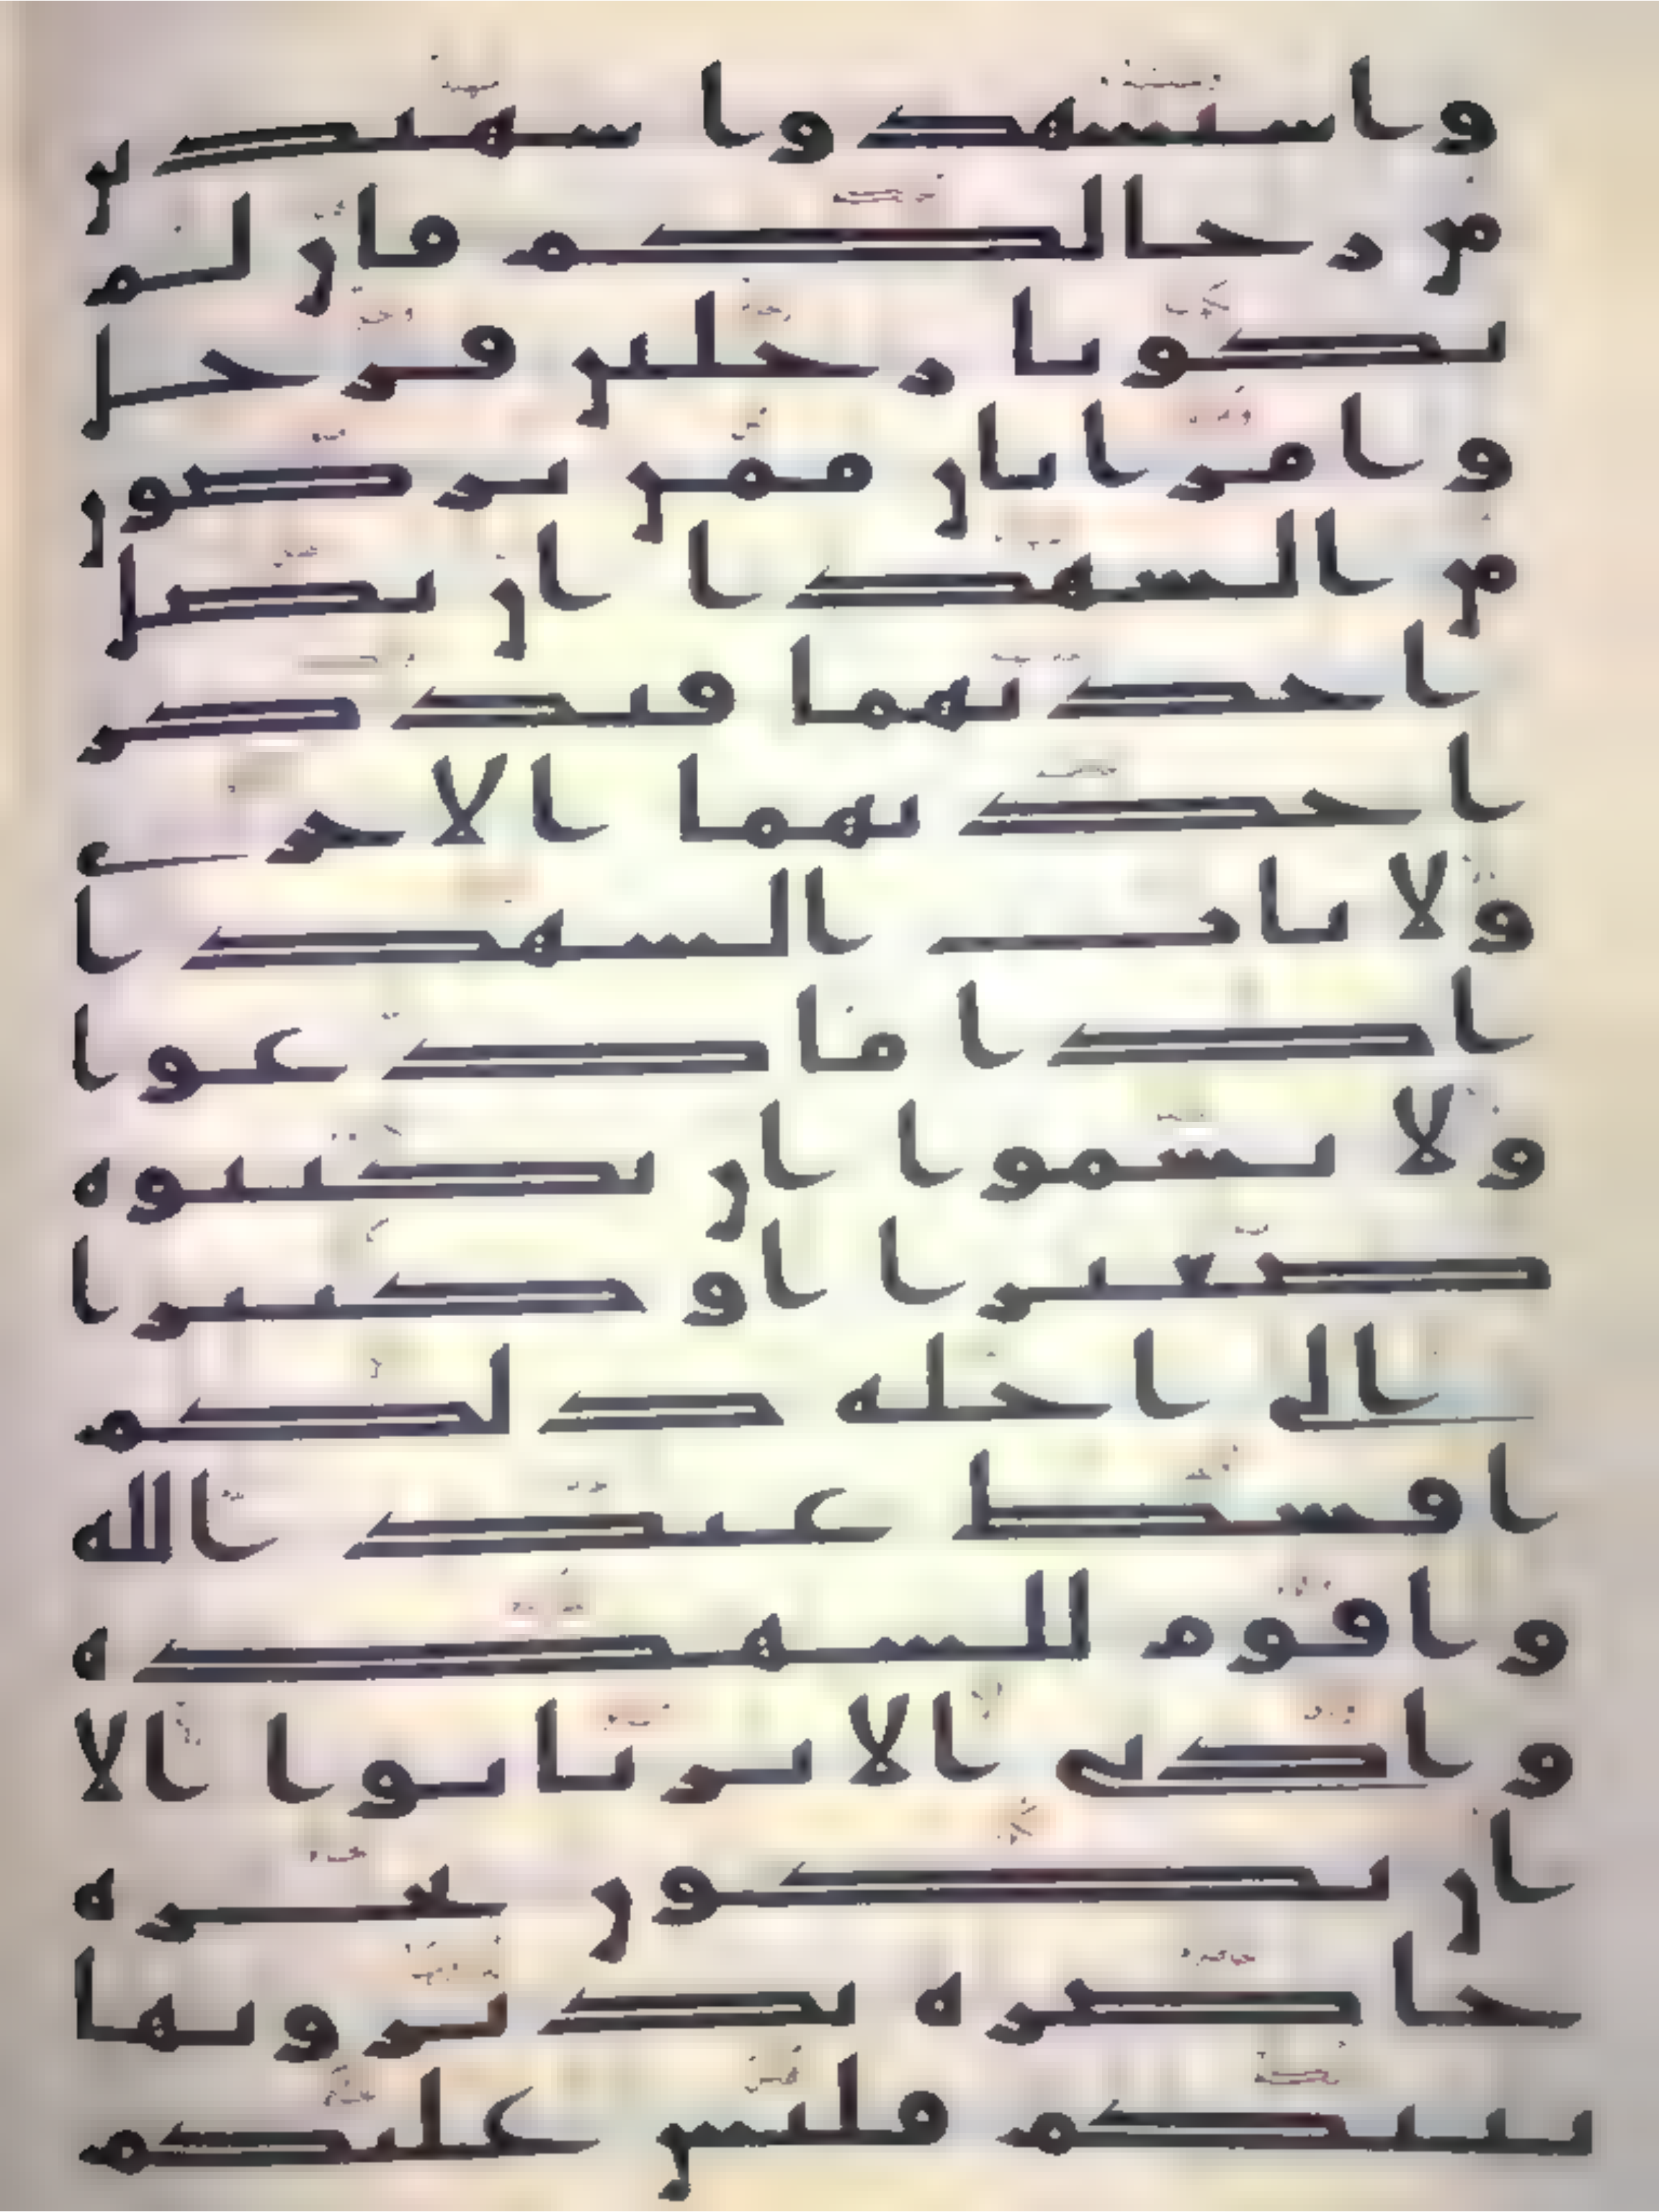 واستشهدوا شهيدين
من رجالكم فان لم
يكونا رجلين فرجل
وامراتان ممن ترضون
من الشهدا ان تضل
احديهما فتذكر
احديهما الاخرى
ولا ياب الشهدا
اذا ما دعوا
ولا تسموا ان تكتبوه
صغيرا او كبيرا
الى اجله ذلكم
اقسط عند الله
واقوم للشهده
وادنى الا ترتابوا الا
ان تكون تجره
حاضره تديرونها
بينكم فليس عليكم